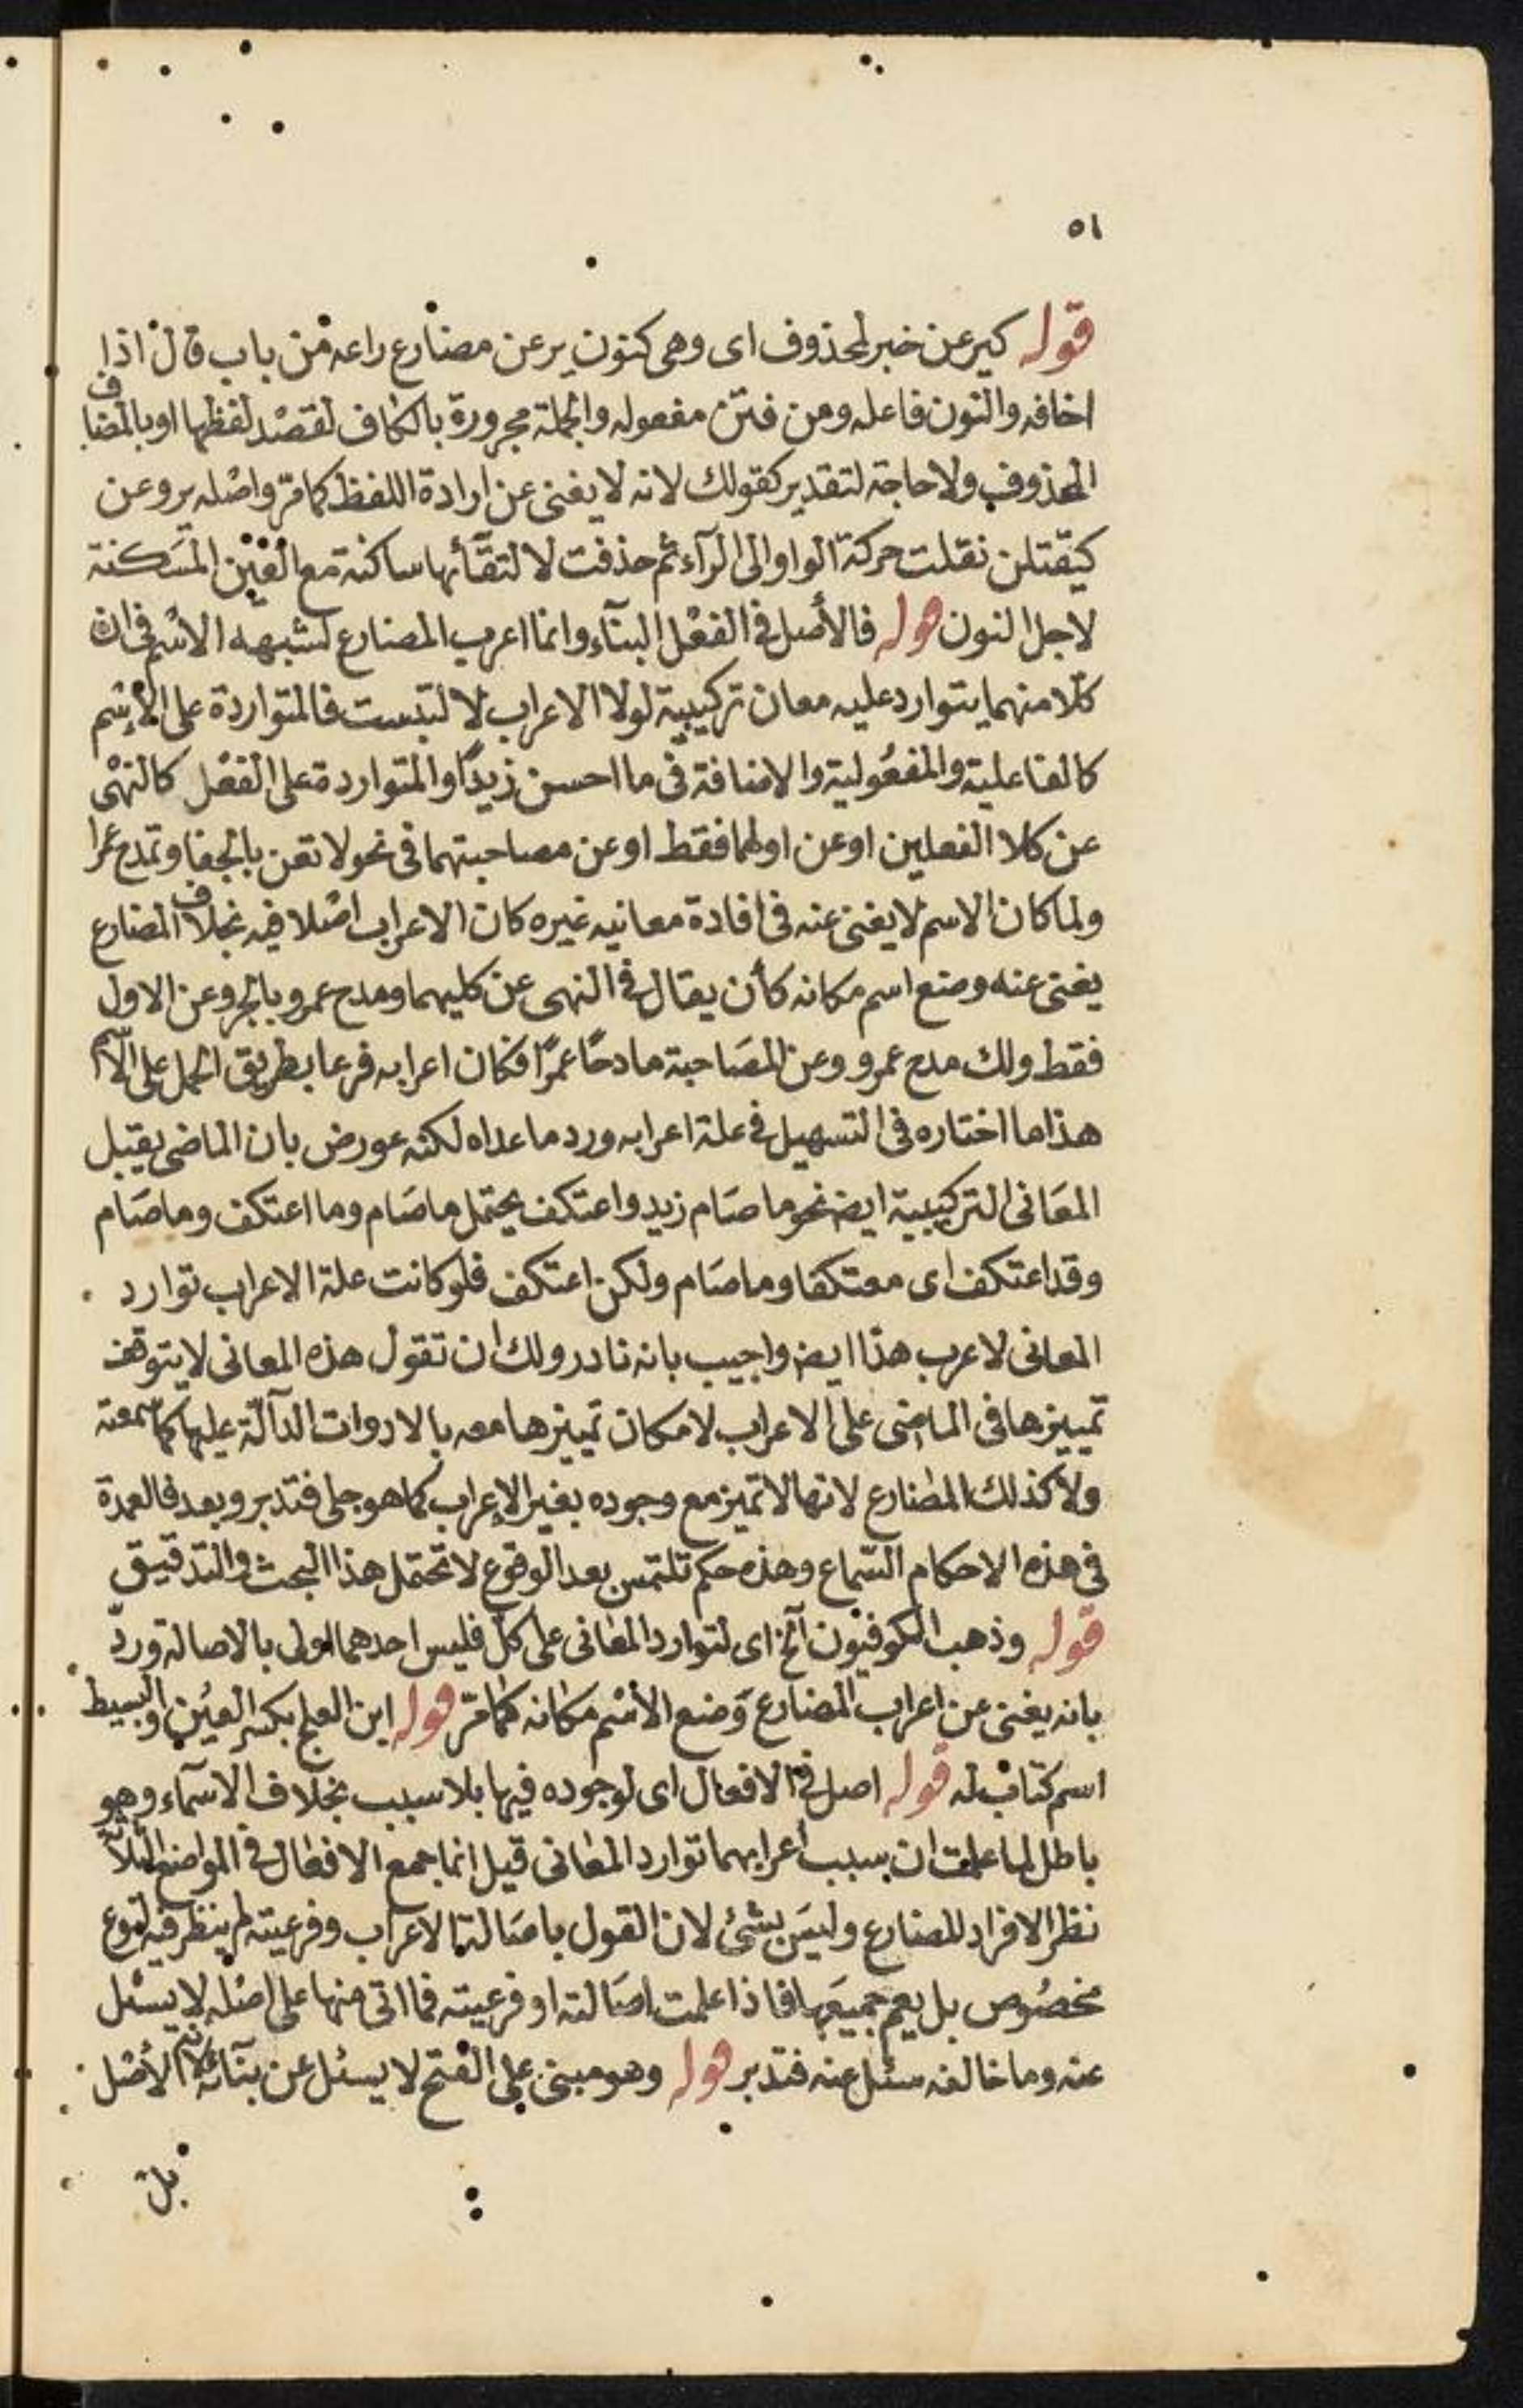 ٥١
قوله كيرعن خبر لمحذوف اى وهى كنون يرعن مضارع راعه من باب قال اذا
اخافه والنون فاعله ومن فتن مفعوله والجملة مجرورة بالكاف لقصد لفظها او بالمضاف
المحذوف ولا حاجة لتقدير كقولك لانه لا يغنى عن ارادة اللفظ كما مرّ واصله يروعن
كيقتلن نقلت حركة الواو الى الرآء ثم حذفت لالتقآئها ساكنة مع العين المسكنة
لاجل النون قوله فالأصل فى الفعل البنآء وانما اعرب المضارع لشبهه الاسم فى ان
كلا منهما يتوارد عليه معان تركيبية لولا الاعراب لالتبست فالمتواردة على الإسم
كالفاعلية والمفعولية والاضافة فى ما احسن زيدًا والمتواردة على الفعل كالنهى
عن كلا الفعلين او عن اولهما فقط او عن مصاحبتهما فى نحو لا تعن بالجفا وتمدح عمرا
ولما كان الاسم لا يغنى عنه فى افادة معانيه غيره كان الاعراب اصلا فيه بخلاف المضارع
يغنى عنه وضع اسم مكانه كأن يقال فى النهى عن كليهما ومدح عمرو بالجر وعن الاول
فقط ولك مدح عمرو وعن المصاحبة مادحًا عمرًا فكان اعرابه فرعا بطريق الحمل على الاسم
هذا ما اختاره فى التسهيل فى علة اعرابه ورد ما عداه لكنه عورض بان الماضى يقبل
المعانى التركيبية ايضا نحو ما صام زيد واعتكف يحتمل ما صام وما اعتكف وما صام
وقد اعتكف اى معتكفا وما صام ولكن اعتكف فلو كانت علة الاعراب توارد
المعانى لاعرب هذا ايضا واجيب بانه نادر ولك ان تقول هذه المعانى لا يتوقف
تمييزها فى الماضى على الاعراب لامكان تمييزها معه بالادوات الدآلّة عليها كما سمعته
ولا كذلك المضارع لانها لا تميز مع وجوده بغير الإعراب كما هو جلى فتدبر وبعد فالعمدة
فى هذه الاحكام السّماع وهذه حكم تلتمس بعد الوقوع لا تحتمل هذا البحث والتدقيق
قوله وذهب الكوفيون آلخ اى لتوارد المعانى على كل فليس احدهما اولى بالاصالة وردّ
بانه يغنى عن اعراب المضارع وَضع الأسْم مكانه كما مرّ قوله ابن العلج بكسر العين والبسيط
اسم كتاب له قوله اصل فى الافعال اى لوجوده فيها بلا سبب بخلاف الاسمآء وهو
باطل لما علمت ان سبب اعرابهما توارد المعانى قيل انما جمع الافعال فى المواضع الثلاثة
نظر الافراد المضارع وليس بشئ لان القول باصالة الاعراب وفرعيته لم ينظر فيه لنوع
مخصُوص بل يعم جميعها فاذا علمت اصالته او فرعيته فما اتى منها على اصله لا يسئل
عنه وما خالفه سئل عنه فتدبر قوله وهو مبنى على الفتح لا يسئل عن بنآئه لانه الأصل
بل